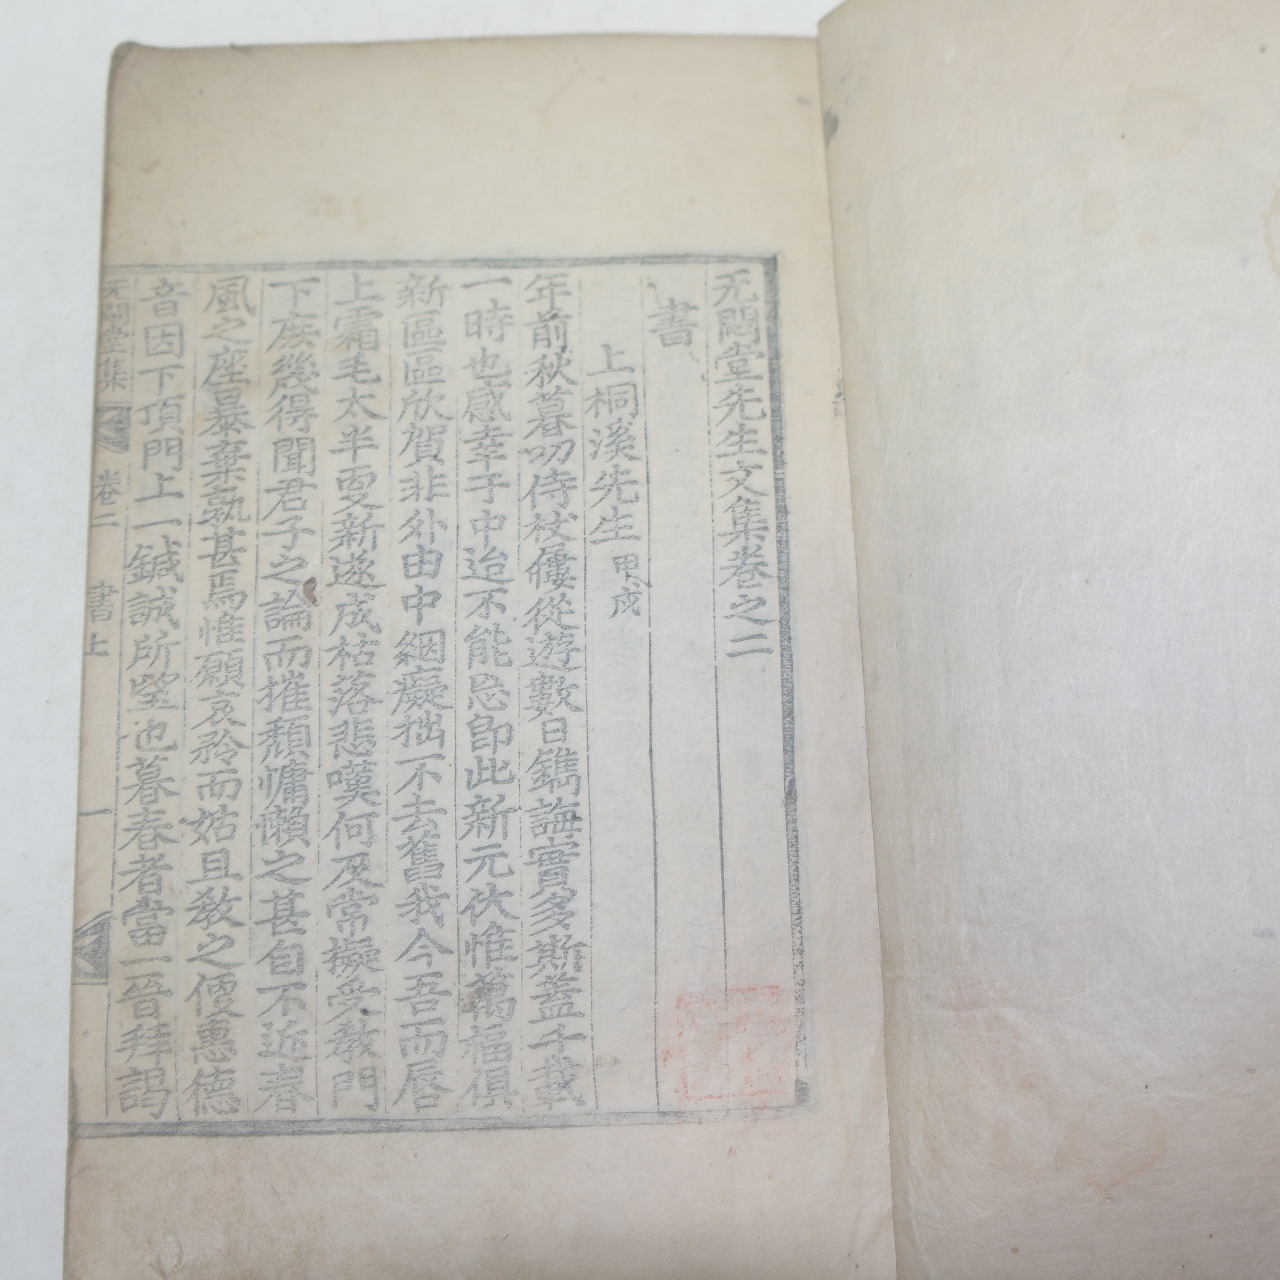 无悶堂先生文集卷之二
書
上桐溪先生 甲戌
年前秋暮叨侍杖屨從遊數日鐫誨實多斯蓋千載
一時也感幸于中迨不能忘卽此新元伏惟萬福俱
新區區欣賀非外由中絪癡拙不去舊我今吾而唇
上霜毛太半更新遂成枯落悲嘆何及常擬受教門
下庶幾得聞君子之論而摧頹慵懶之甚自不近春
風之座暴棄孰甚焉惟願哀矜而姑且教之便惠德
音因下頂門上一鍼誠所望也暮春者當一晉拜謁
无悶堂集 卷二 書上 一